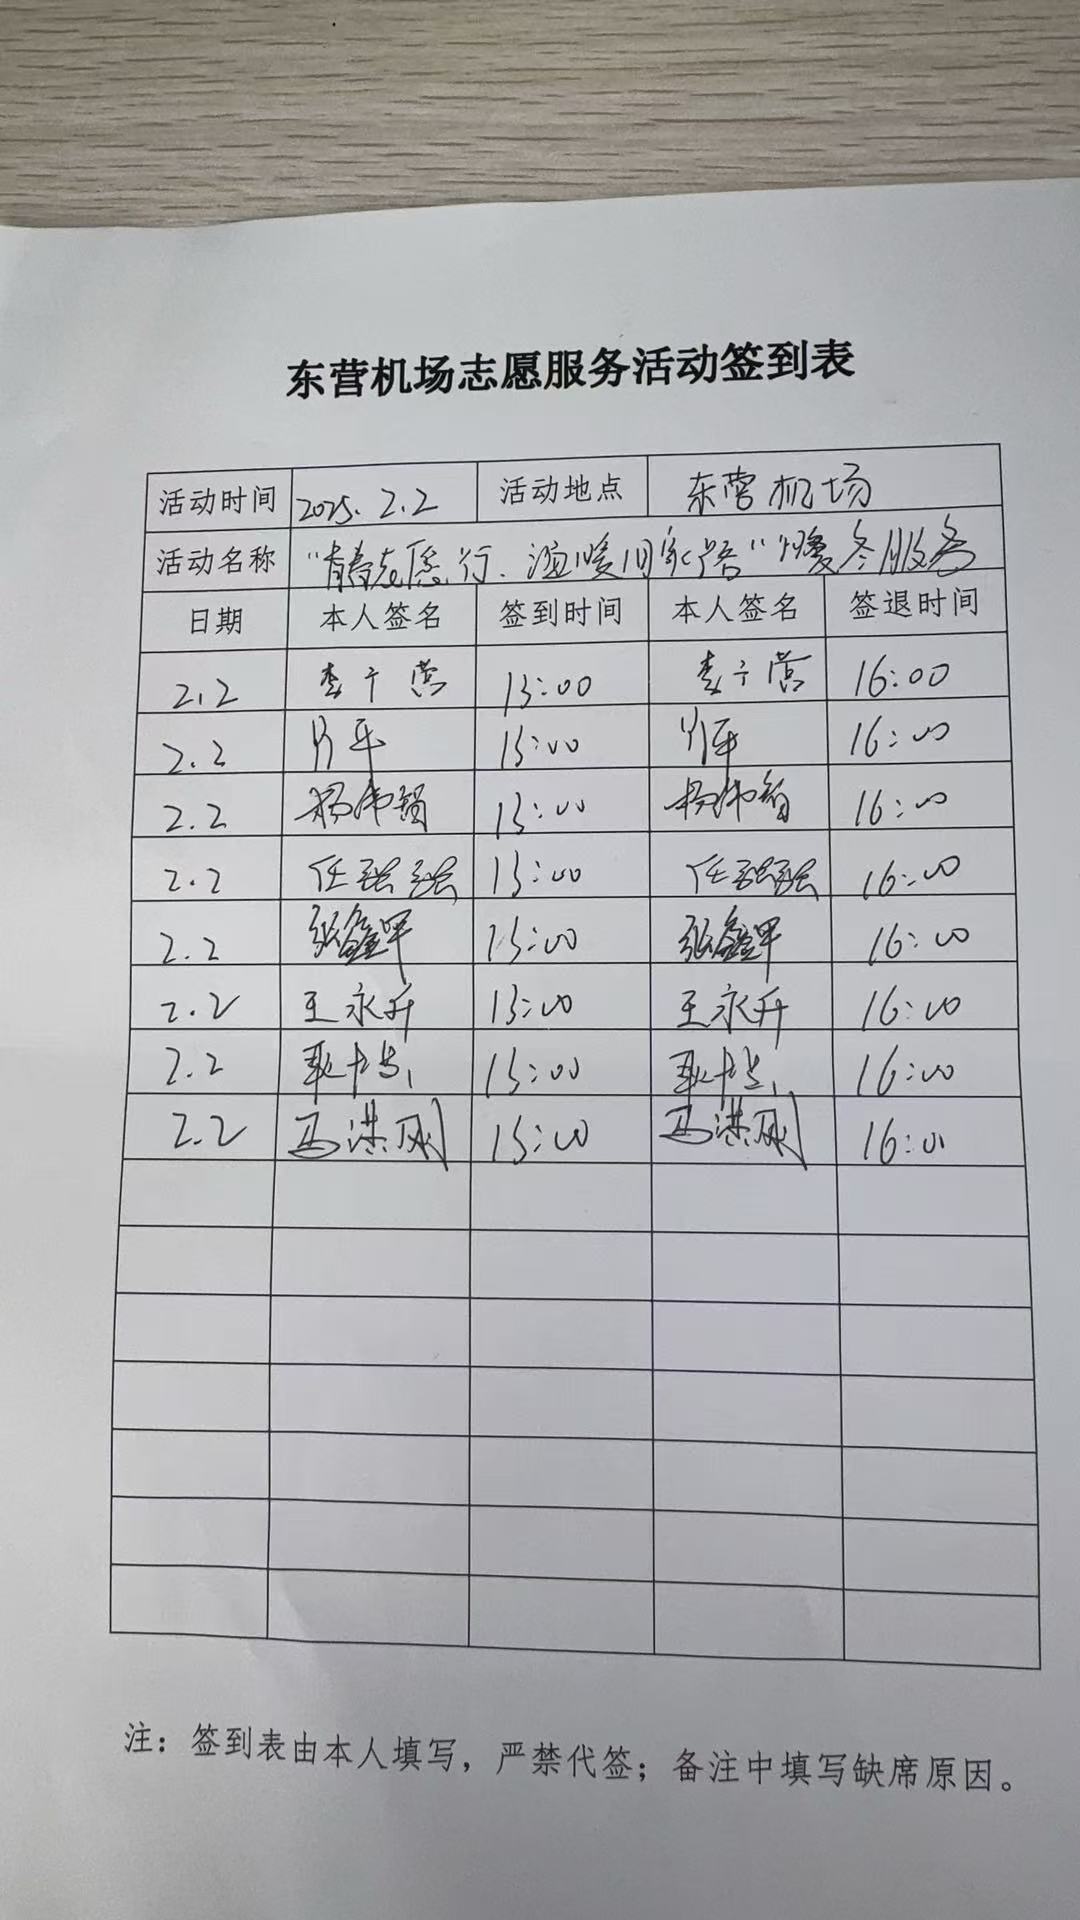 东营机场志愿服务活动签到表
活动时间 2025.2.2 活动地点 东营机场
活动名称 "情志愿行、温暖回家路"暖冬服务
日期 本人签名 签到时间 本人签名 签退时间
2.2 李于营 13:00 李于营 16:00
2.2 13:00 16:00
2.2 杨伟智 13:00 杨伟智 16:00
2.2 任 13:00 任 16:00
2.2 张鑫 13:00 张鑫 16:00
2.2 王永升 13:00 王永升 16:00
2.2 耿 13:00 耿 16:00
2.2 马洪刚 13:00 马洪刚 16:00
注：签到表由本人填写，严禁代签；备注中填写缺席原因。